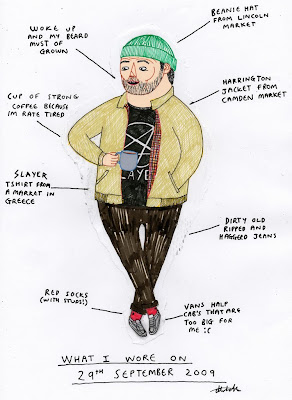 WOKE UP
AND MY BEARD
MUST OF
GROWN
BEANIE HAT
FROM LINCOLN
MARKET
CUP OF STRONG
COFFEE BECAUSE
IM RATE TIRED
HARRINGTON
JACKET FROM
CAMDEN MARKET
SLAYER
TSHIRT FROM
A MARKET IN
GREECE
LAYE
DIRTY OLD
RIPPED AND
HAGGERD JEANS
RED SOCKS
(WITH STUDS!)
VANS HALF
CAB'S THAT ARE
TOO BIG FOR
ME :(
WHAT I WORE ON
29TH SEPTEMBER 2009